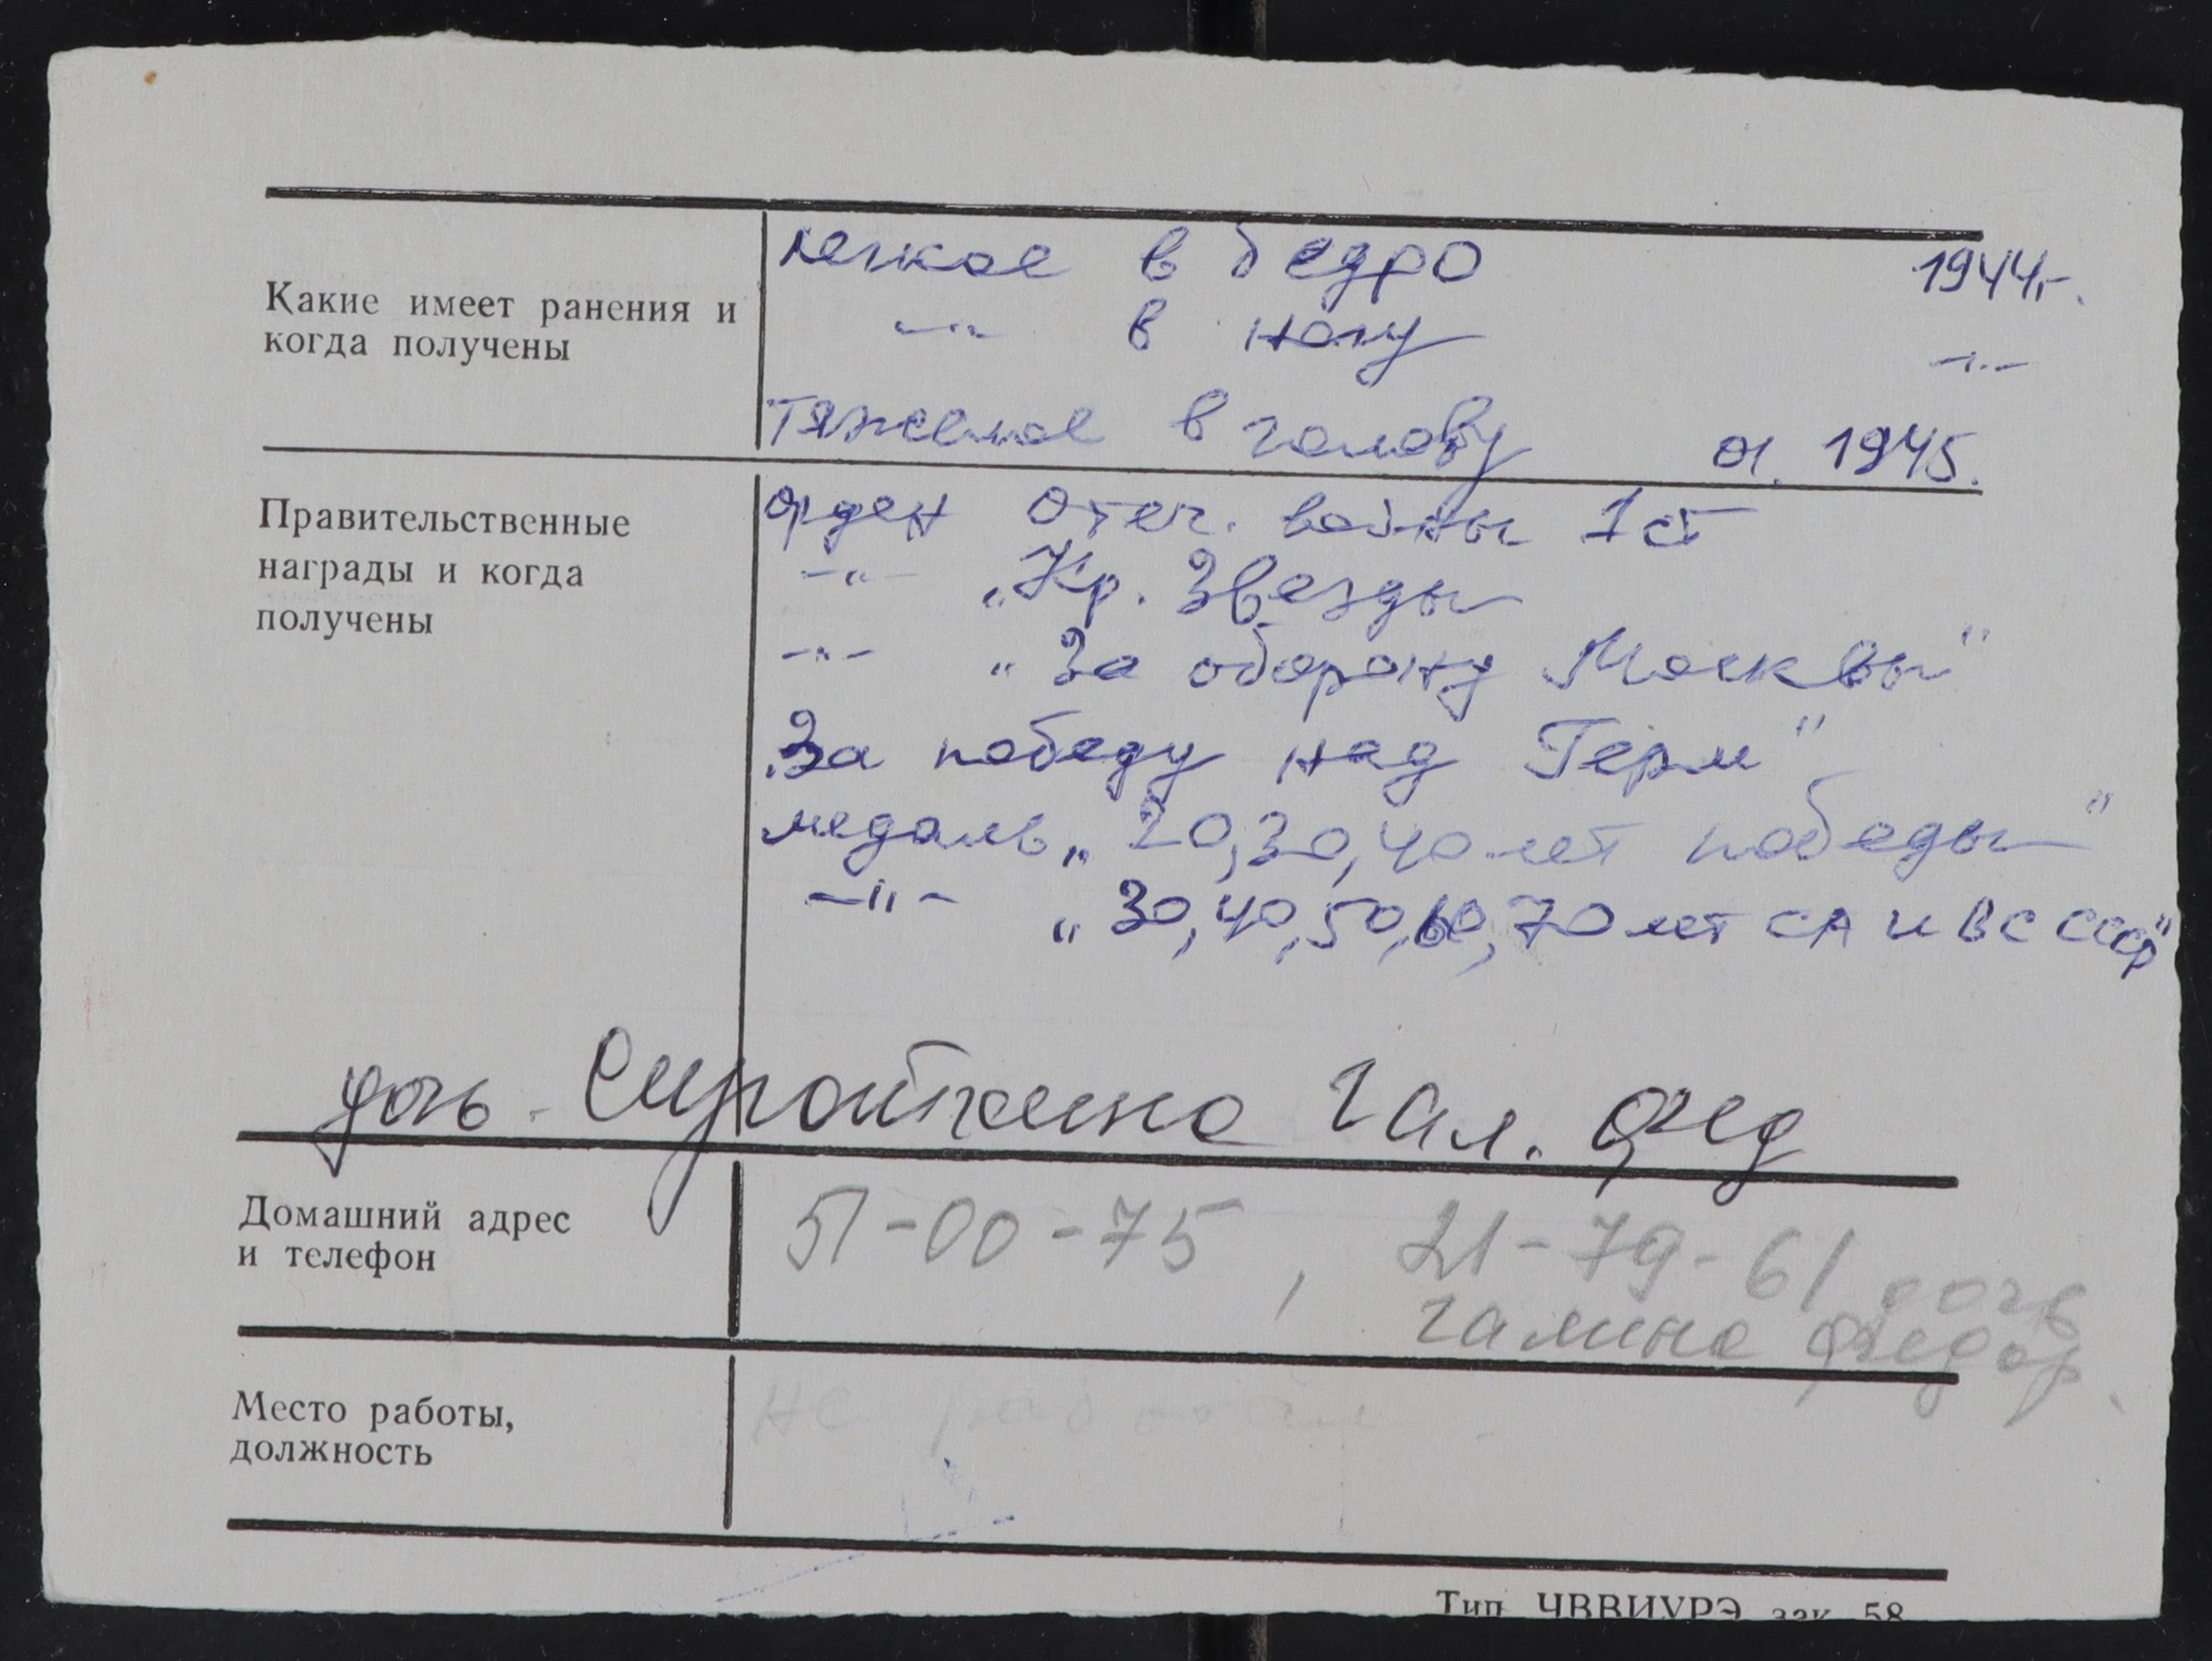 Какие имеет ранения и
когда получены
легкое в бедро 1944 г.
-"- в ногу -"-
тяжелое в голову 01. 1945.
Правительственные
награды и когда
получены
орден Отеч. войны 1 ст
-"- "Кр. Звезды
-"- "За оборону Москвы"
"За победу над Герм"
медаль "20, 30, 40 лет победы"
-"- "30, 40, 50, 60, 70 лет СА и ВС СССР"
дочь - Гал. Фед
Домашний адрес
и телефон
51-00-75, 21-79-61 дочь
Галина Федор.
Место работы,
должность
не
Тип. ЧВВИУРЭ зак. 58